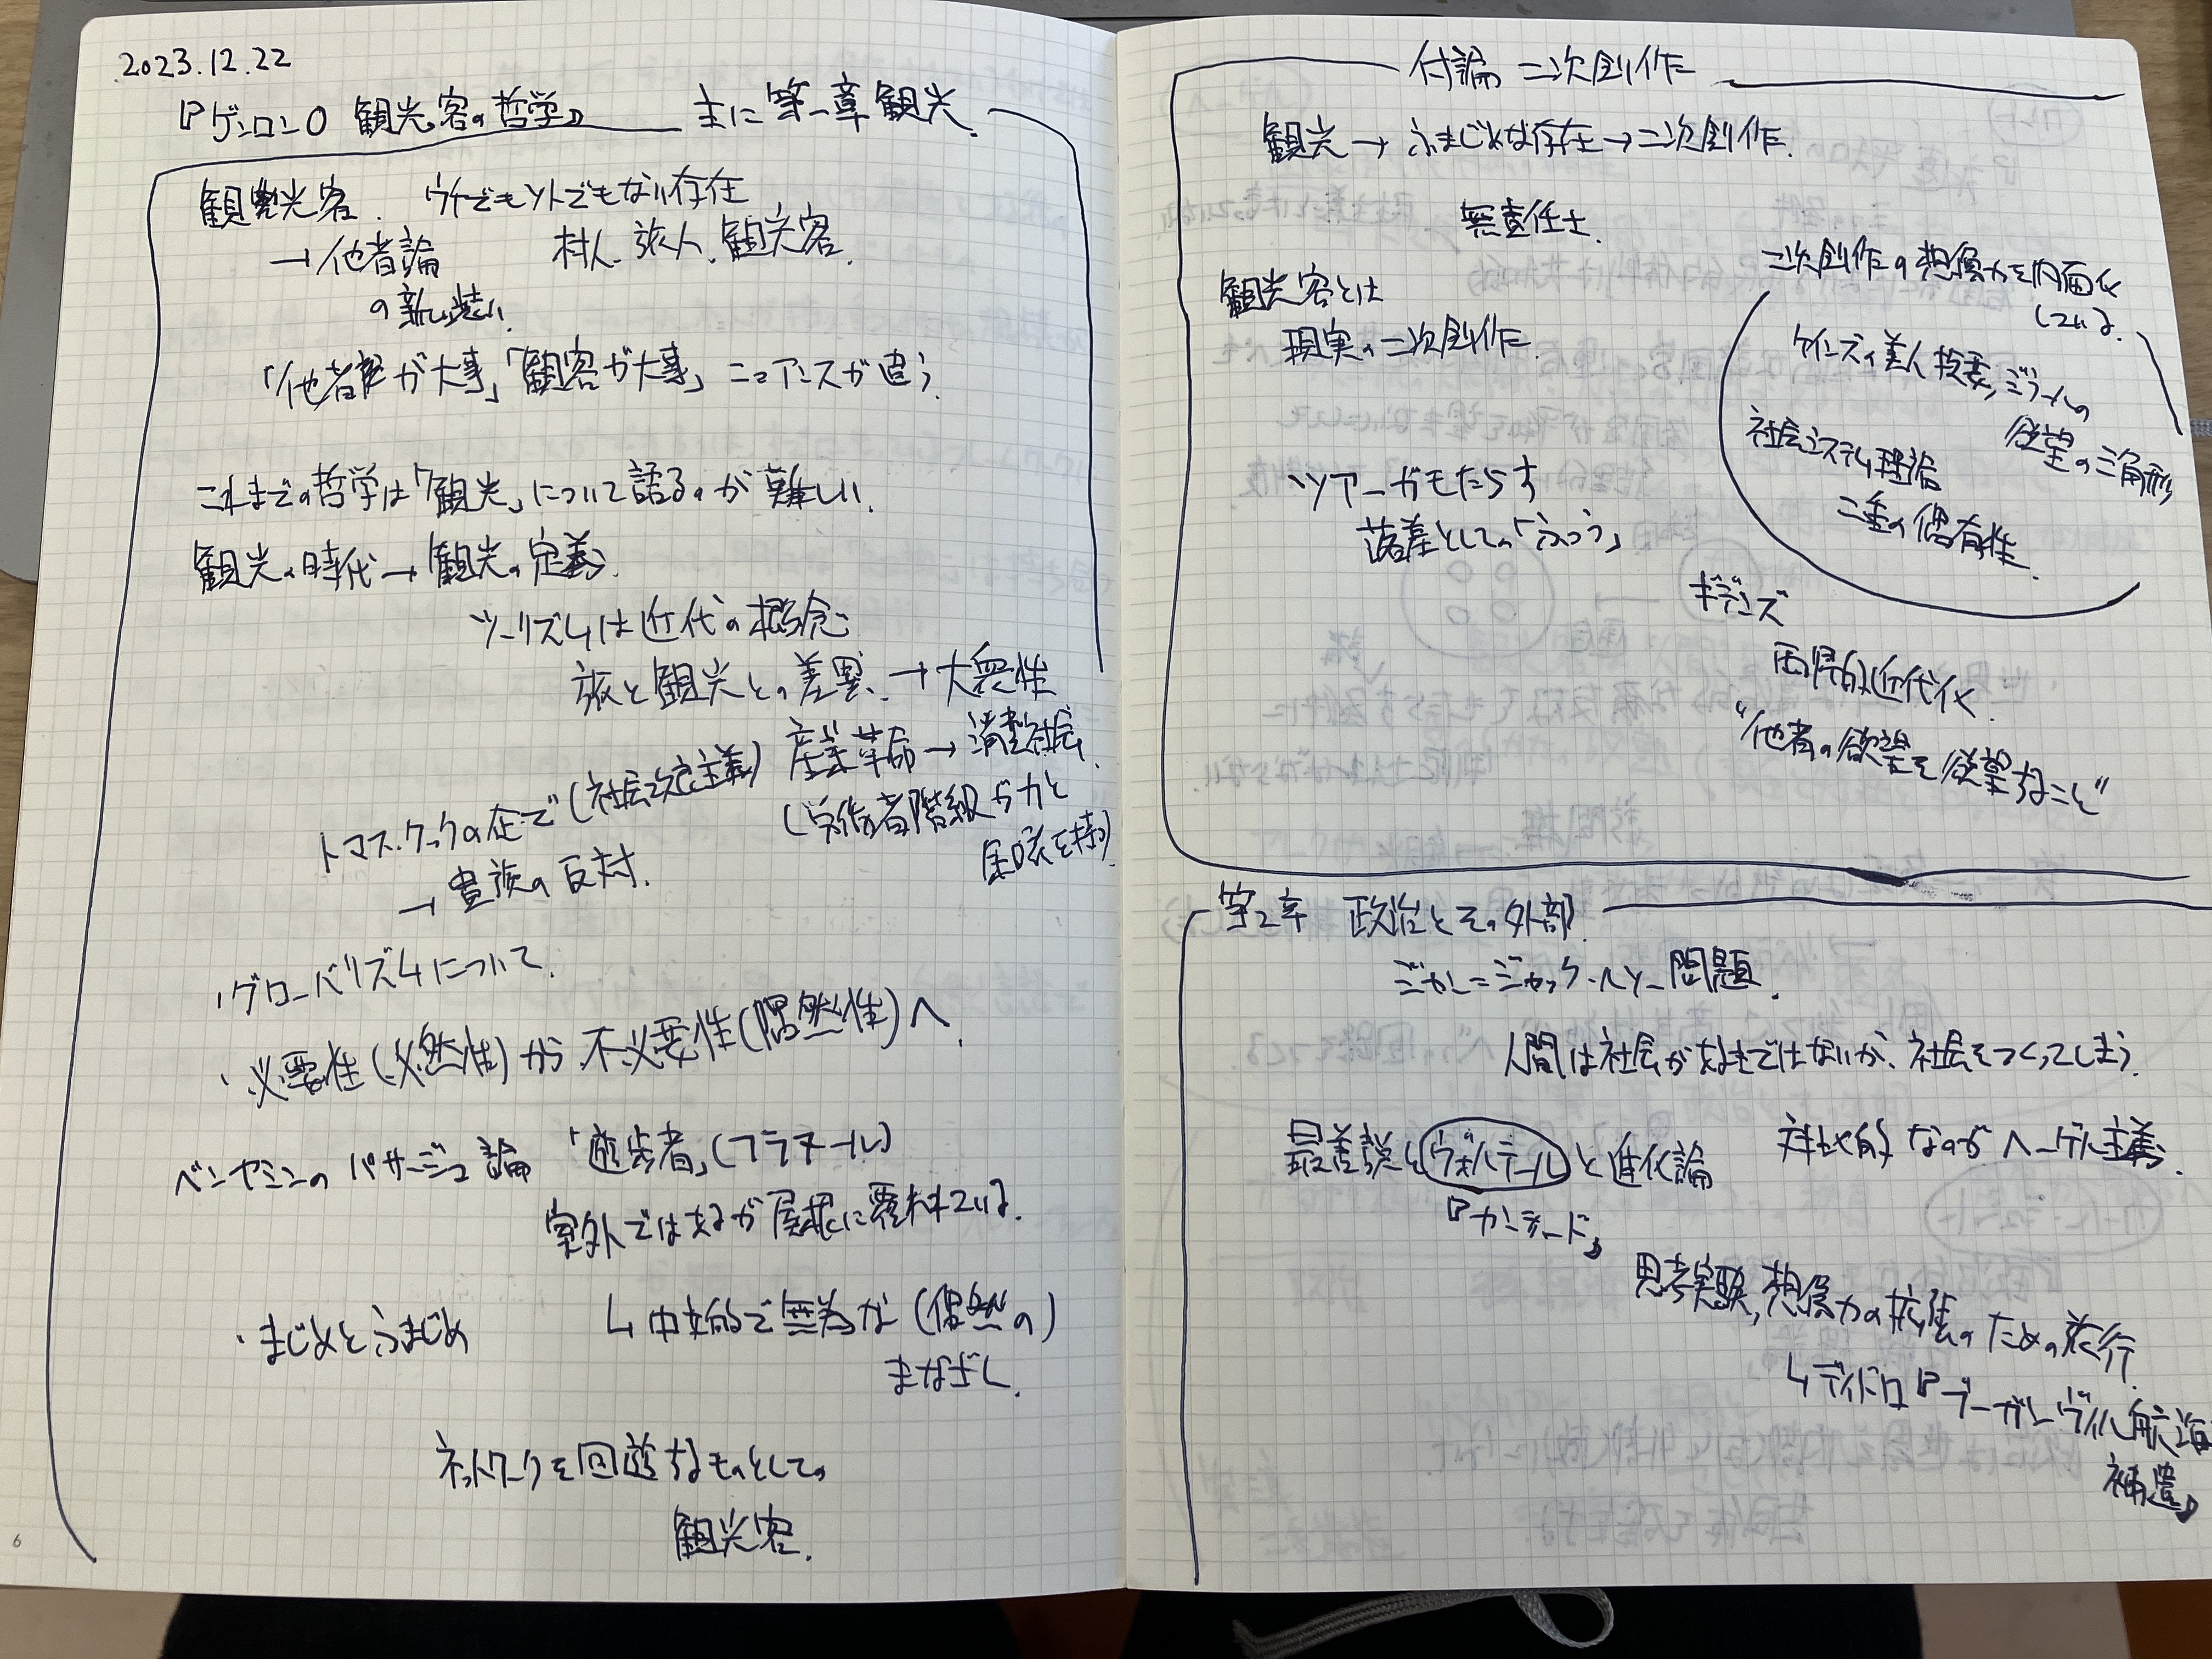 2023.12.22
『ゲンロン0 観光客の哲学』 主に第一章 観光.
観光客. ウチでもソトでもない存在
→他者論 村人. 旅人. 観光客.
の新しい装い.
「他者が大事」「観客が大事」ニュアンスが違う.
これまでの哲学は「観光」について語るのが難しい.
観光の時代→観光の定義.
ツーリズムは近代の概念.
旅と観光との差異. →大衆性
産業革命→消費社会.
(労働者階級が力と
余暇を持つ)
トマス・クックの企て(社会改良主義)
→貴族の反対.
・グローバリズムについて.
・必要性(必然性)から不必要性(偶然性)へ.
ベンヤミンのパサージュ論 「遊歩者」(フラヌール)
室外ではあるが屋根に覆われている.
・まじめとふまじめ
↳中立的で無為な(偶然の)
まなざし.
ネットワークを回遊するものとしての
観光客.
6
付論 二次創作
観光→ふまじめな存在→二次創作.
無責任さ.
観光客とは
現実の二次創作.
ツアーがもたらす
落差としての「ふつう」
二次創作の想像力を内面化
している.
ケインズの美人投票, ジラールの
欲望の三角形
社会システム理論
二重の偶有性.
ギデンズ
再帰的近代化.
“他者の欲望を欲望すること”
第2章 政治とその外部.
ジャン=ジャック・ルソー問題.
人間は社会が好きではないが、社会をつくってしまう.
最善説とヴォルテールと進化論 対比的なのがヘーゲル主義.
『カンディード』
思考実験, 想像力の拡張のための旅行.
↳ディドロ『ブーガンヴィル航海
補遺』